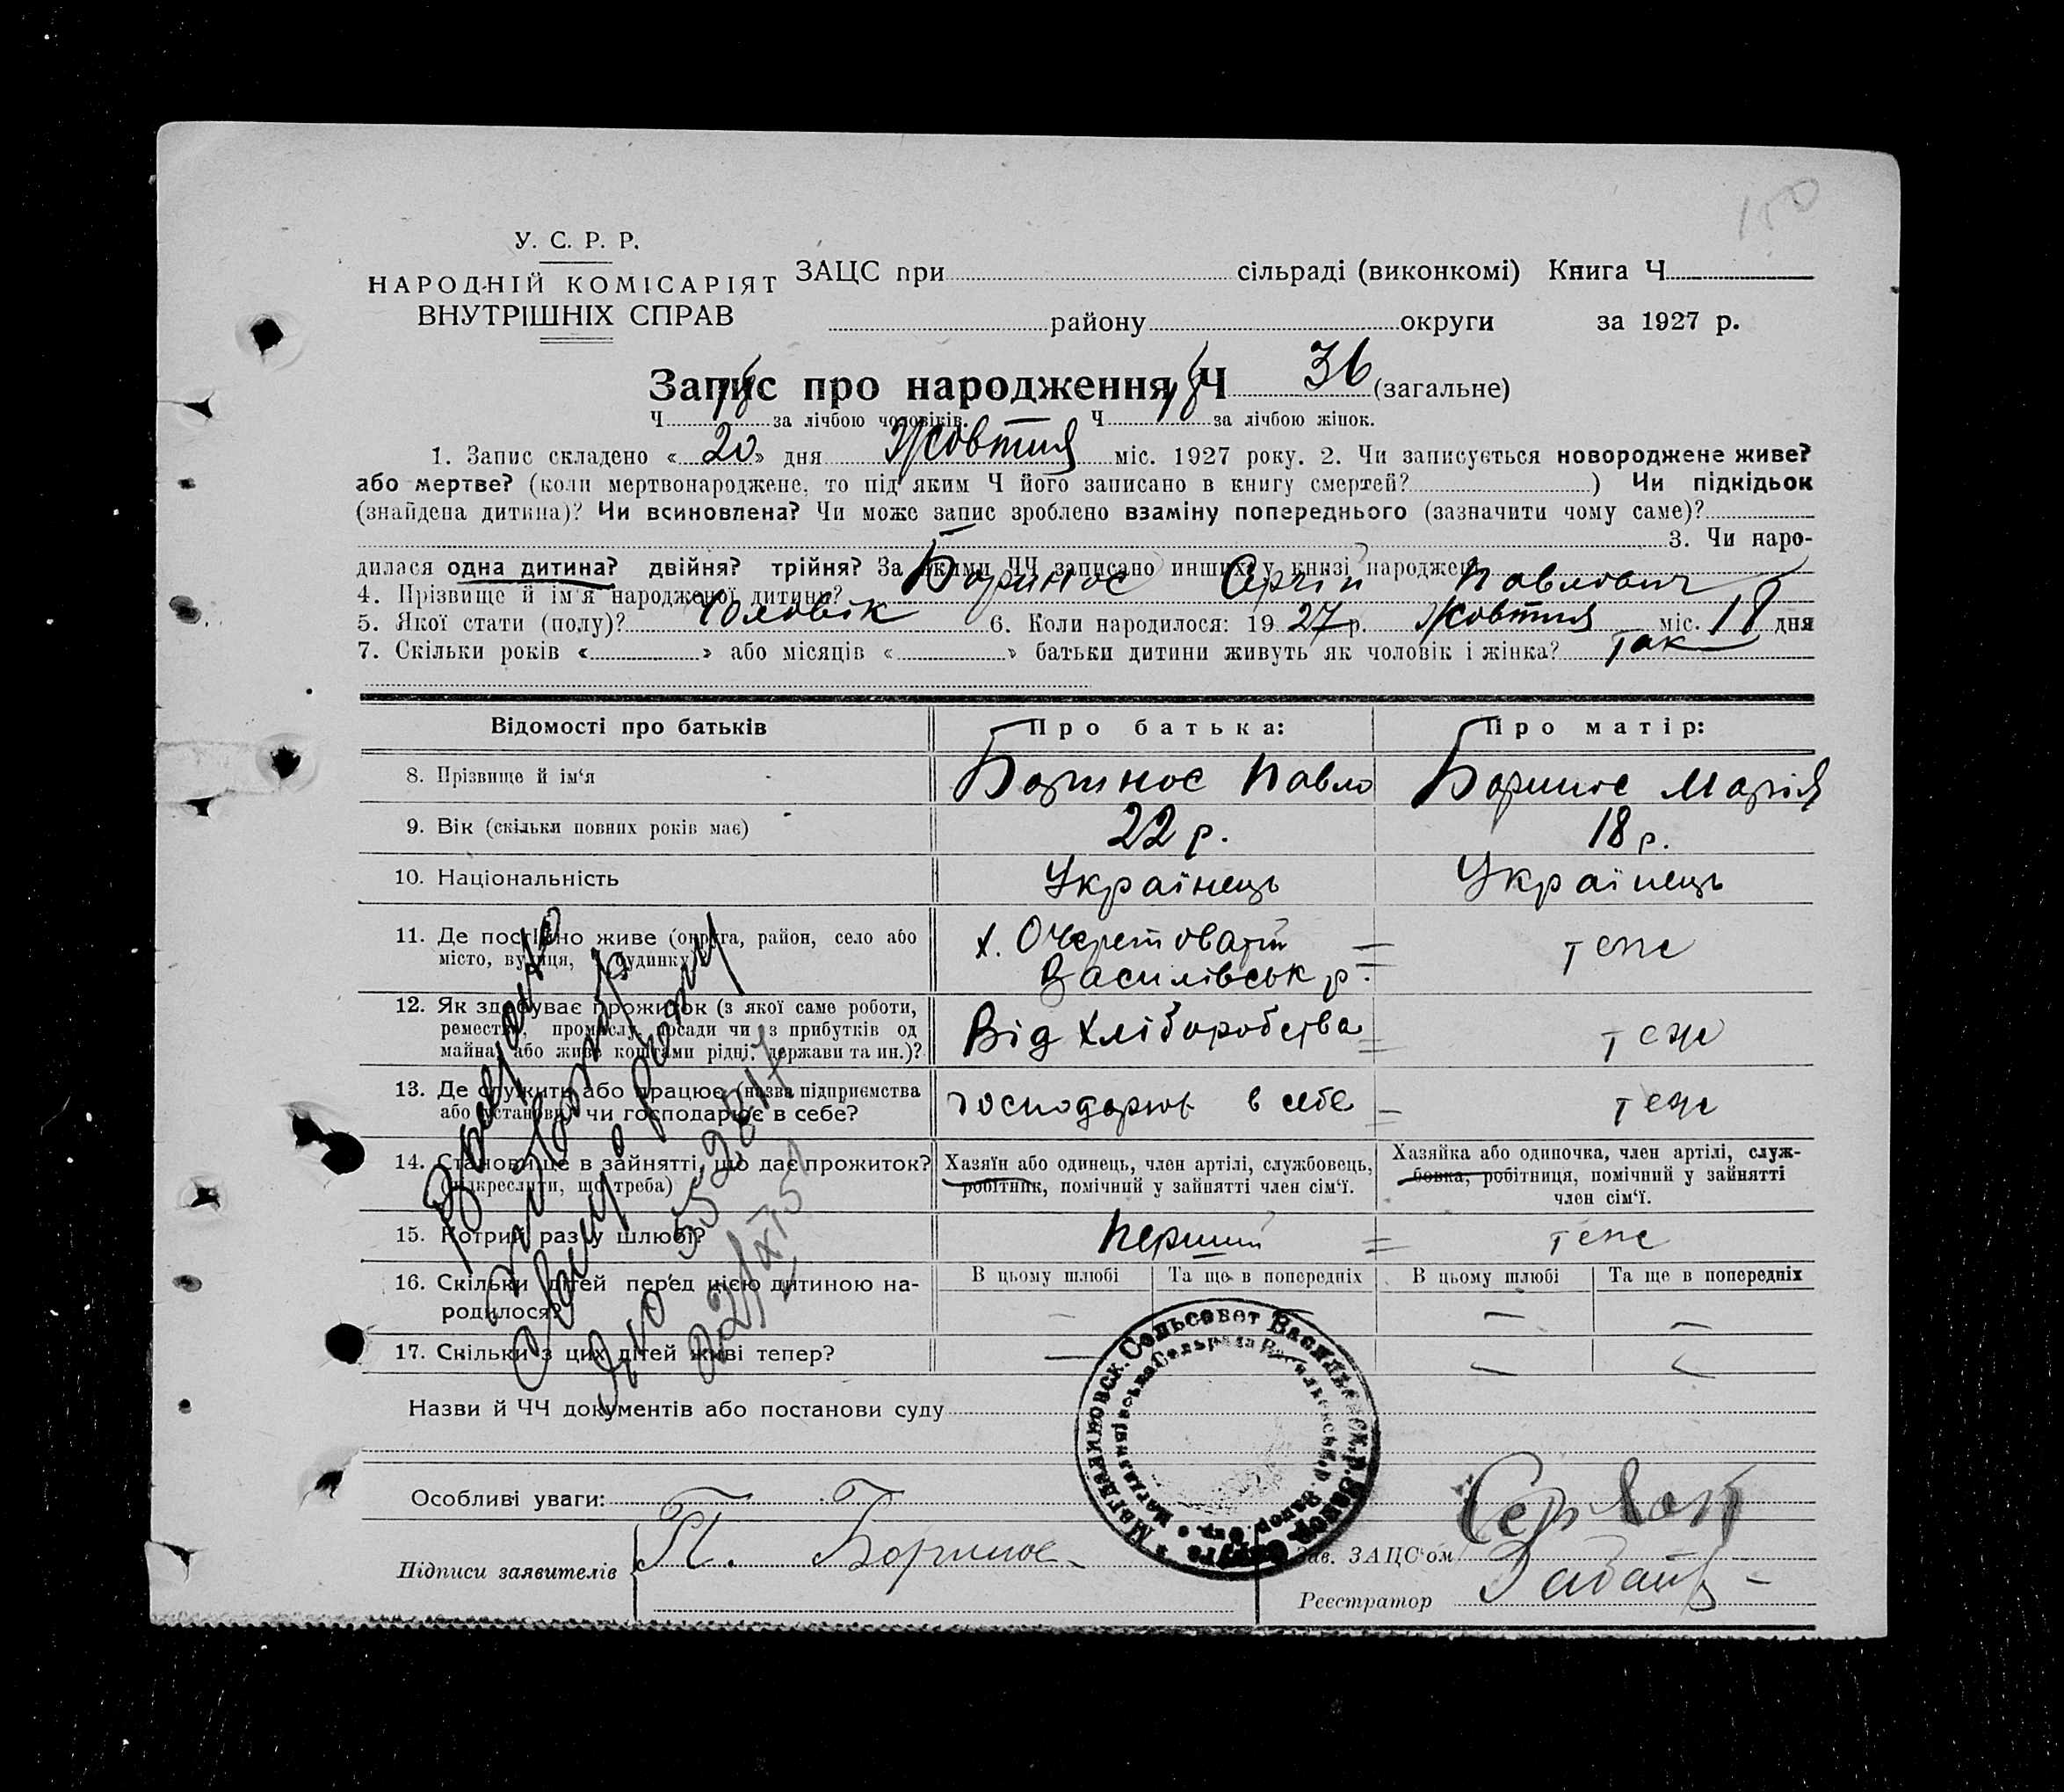 150
У. С. Р. Р.
НАРОДНІЙ КОМІСАРІЯТ
ВНУТРІШНІХ СПРАВ
ЗАЦС при сільраді (виконкомі) Книга Ч
району округи за 1927 р.
Запис про народження Ч 36 (загальне)
Ч 18 за лічбою чоловіків. Ч 18 за лічбою жінок.
1. Запис складено «20» дня Жовтня міс. 1927 року. 2. Чи записується новороджене живе?
або мертве? (коли мертвонароджене, то під яким Ч його записано в книгу смертей? ) Чи підкідьок
(знайдена дитина)? Чи всиновлена? Чи може запис зроблено взаміну попереднього (зазначити чому саме)?
3. Чи наро-
дилася одна дитина? двійня? трійня? За якими ЧЧ записано инших у книзі народжен
4. Прізвище й ім'я народженої дитини? Боринос Сергій Павлович
5. Якої стати (полу)? Чоловік 6. Коли народилося: 1927 р. Жовтня міс. 18 дня
7. Скільки років « » або місяців « » батьки дитини живуть як чоловік і жінка? Так
Відомості про батьків Про батька: Про матір:
8. Прізвище й ім'я Боринос Павло Боринос Марія
9. Вік (скільки повних років має) 22 р. 18 р.
10. Національність Українець Українець
11. Де постійно живе (округа, район, село або
місто, вулиця, будинку)
х. Очеретоватий
Василівськ р.
теж
12. Як здобуває прожиток (з якої саме роботи,
ремества, промислу, посади чи з прибутків од
майна, або живе коштами рідні, держави та ин.)?
Від хліборобства теж
13. Де служить або працює (назва підприємства
або установи) чи господарює в себе?
господарює в себе теж
14. Становище в зайнятті, що дає прожиток?
(підкреслити, що треба)
Хазяїн або одинець, член артілі, службовець,
робітник, помічний у зайнятті член сім'ї.
Хазяйка або одиночка, член артілі, служ-
бовка, робітниця, помічний у зайнятті
член сім'ї.
15. Котрий раз у шлюбі? Перший теж
16. Скільки дітей перед цією дитиною на-
родилося?
В цьому шлюбі Та ще в попередніх В цьому шлюбі Та ще в попередніх
17. Скільки з цих дітей живі тепер?
Назви й ЧЧ документів або постанови суду
Магдалиновск. Сельсовет Васильевск. р. Запор. Округа
Особливі уваги:
Підписи заявителів П. Боринос
Зав. ЗАЦС'ом
Реєстратор